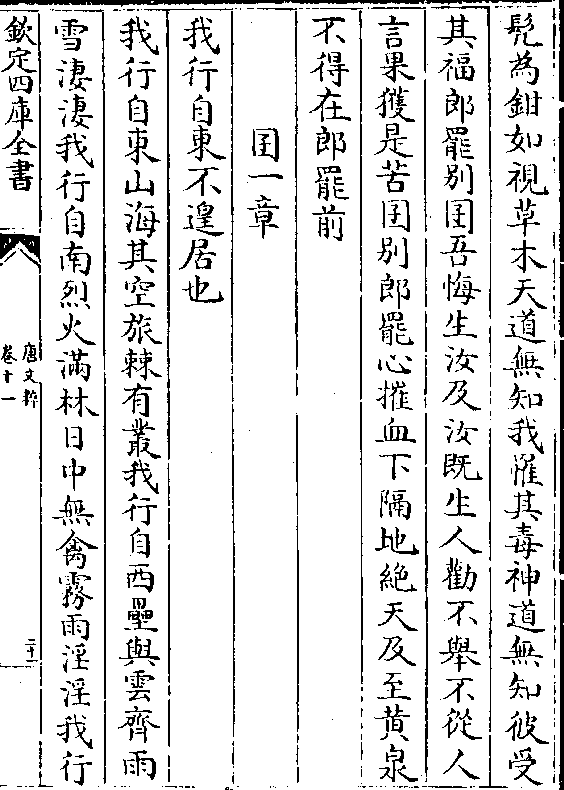 髠為鉗如視草木天道無知我懼其毒神道無知彼受
其福郎罷别囝吾悔生汝及汝既生人勸不舉不從人
言果獲是苦囝别郎罷心摧血下隔地絶天及至黄泉
不得在郎罷前
囝一章
我行自東不遑居也
我行自東山海其空旅棘有叢我行自西壘與雲齊雨
雪淒淒我行自南烈火滿林日中無禽霧雨淫淫我行
欽定四庫全書
唐文粹
卷十一
二十一